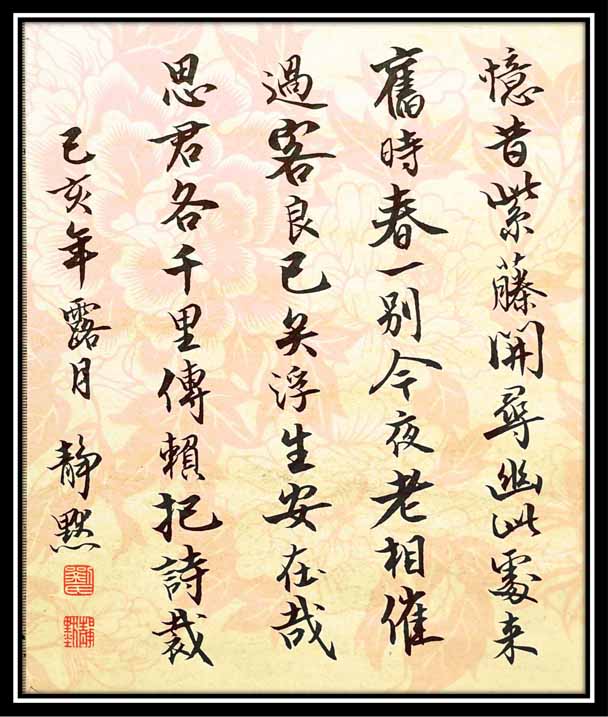 憶昔紫藤開尋幽此處来
舊時春一别今夜老相催
過客良已矣浮生安在哉
思君各千里傳賴把詩裁
己亥年露月 静默